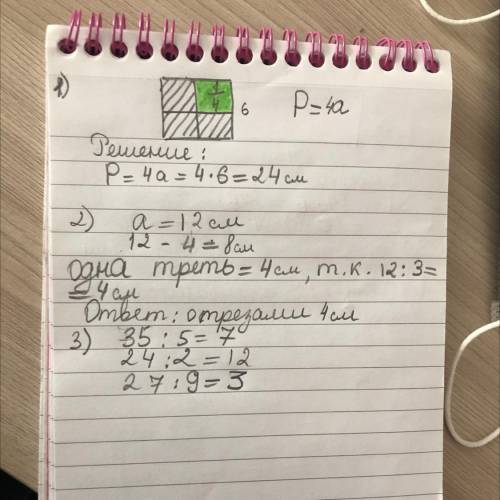 1)
1/4
6
P=4a
Решение:
P=4a=4·6=24см
2) a=12см
12-4=8см
одна треть=4см, т.к. 12:3=
=4см
Ответ: отрезали 4см
3) 35:5=7
24:2=12
27:9=3